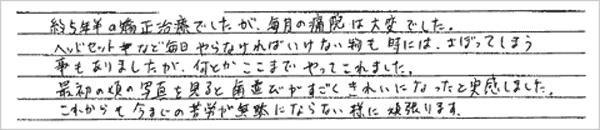 約5年半の矯正治療でしたが、毎月の通院は大変でした。
ヘッドセットキなど毎日やらなければいけない物も時には、さぼってしまう
事もありましたが、何とかここまでやってこれました。
最初の頃の写真を見ると歯並びがすごくきれいになったと実感しました。
これからも今までの苦労が無駄にならない様に頑張ります。